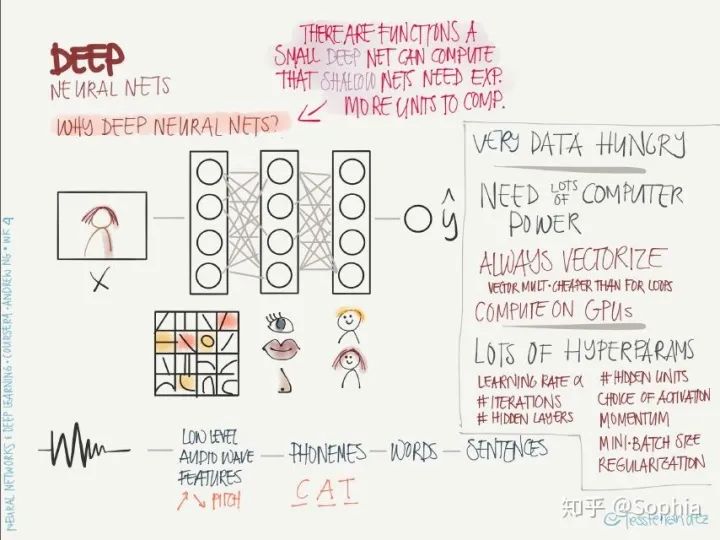 DEEP
NEURAL NETS
WHY DEEP NEURAL NETS?
THERE ARE FUNCTIONS A
SMALL DEEP NET CAN COMPUTE
THAT SHALLOW NETS NEED EXP.
MORE UNITS TO COMP.
X
ŷ
VERY DATA HUNGRY
NEED LOTS OF COMPUTER
POWER
ALWAYS VECTORIZE
VECTOR MULT. CHEAPER THAN FOR LOOPS
COMPUTE ON GPUs
LOTS OF HYPERPARAMS
LEARNING RATE α
# ITERATIONS
# HIDDEN LAYERS
# HIDDEN UNITS
CHOICE OF ACTIVATION
MOMENTUM
MINI-BATCH SIZE
REGULARIZATION
LOW LEVEL
AUDIO WAVE
FEATURES
↗↘ PITCH
PHONEMES
C A T
WORDS
SENTENCES
NEURAL NETWORKS & DEEP LEARNING • COURSERA • ANDREW NG • WK 4
知乎 @Sophia